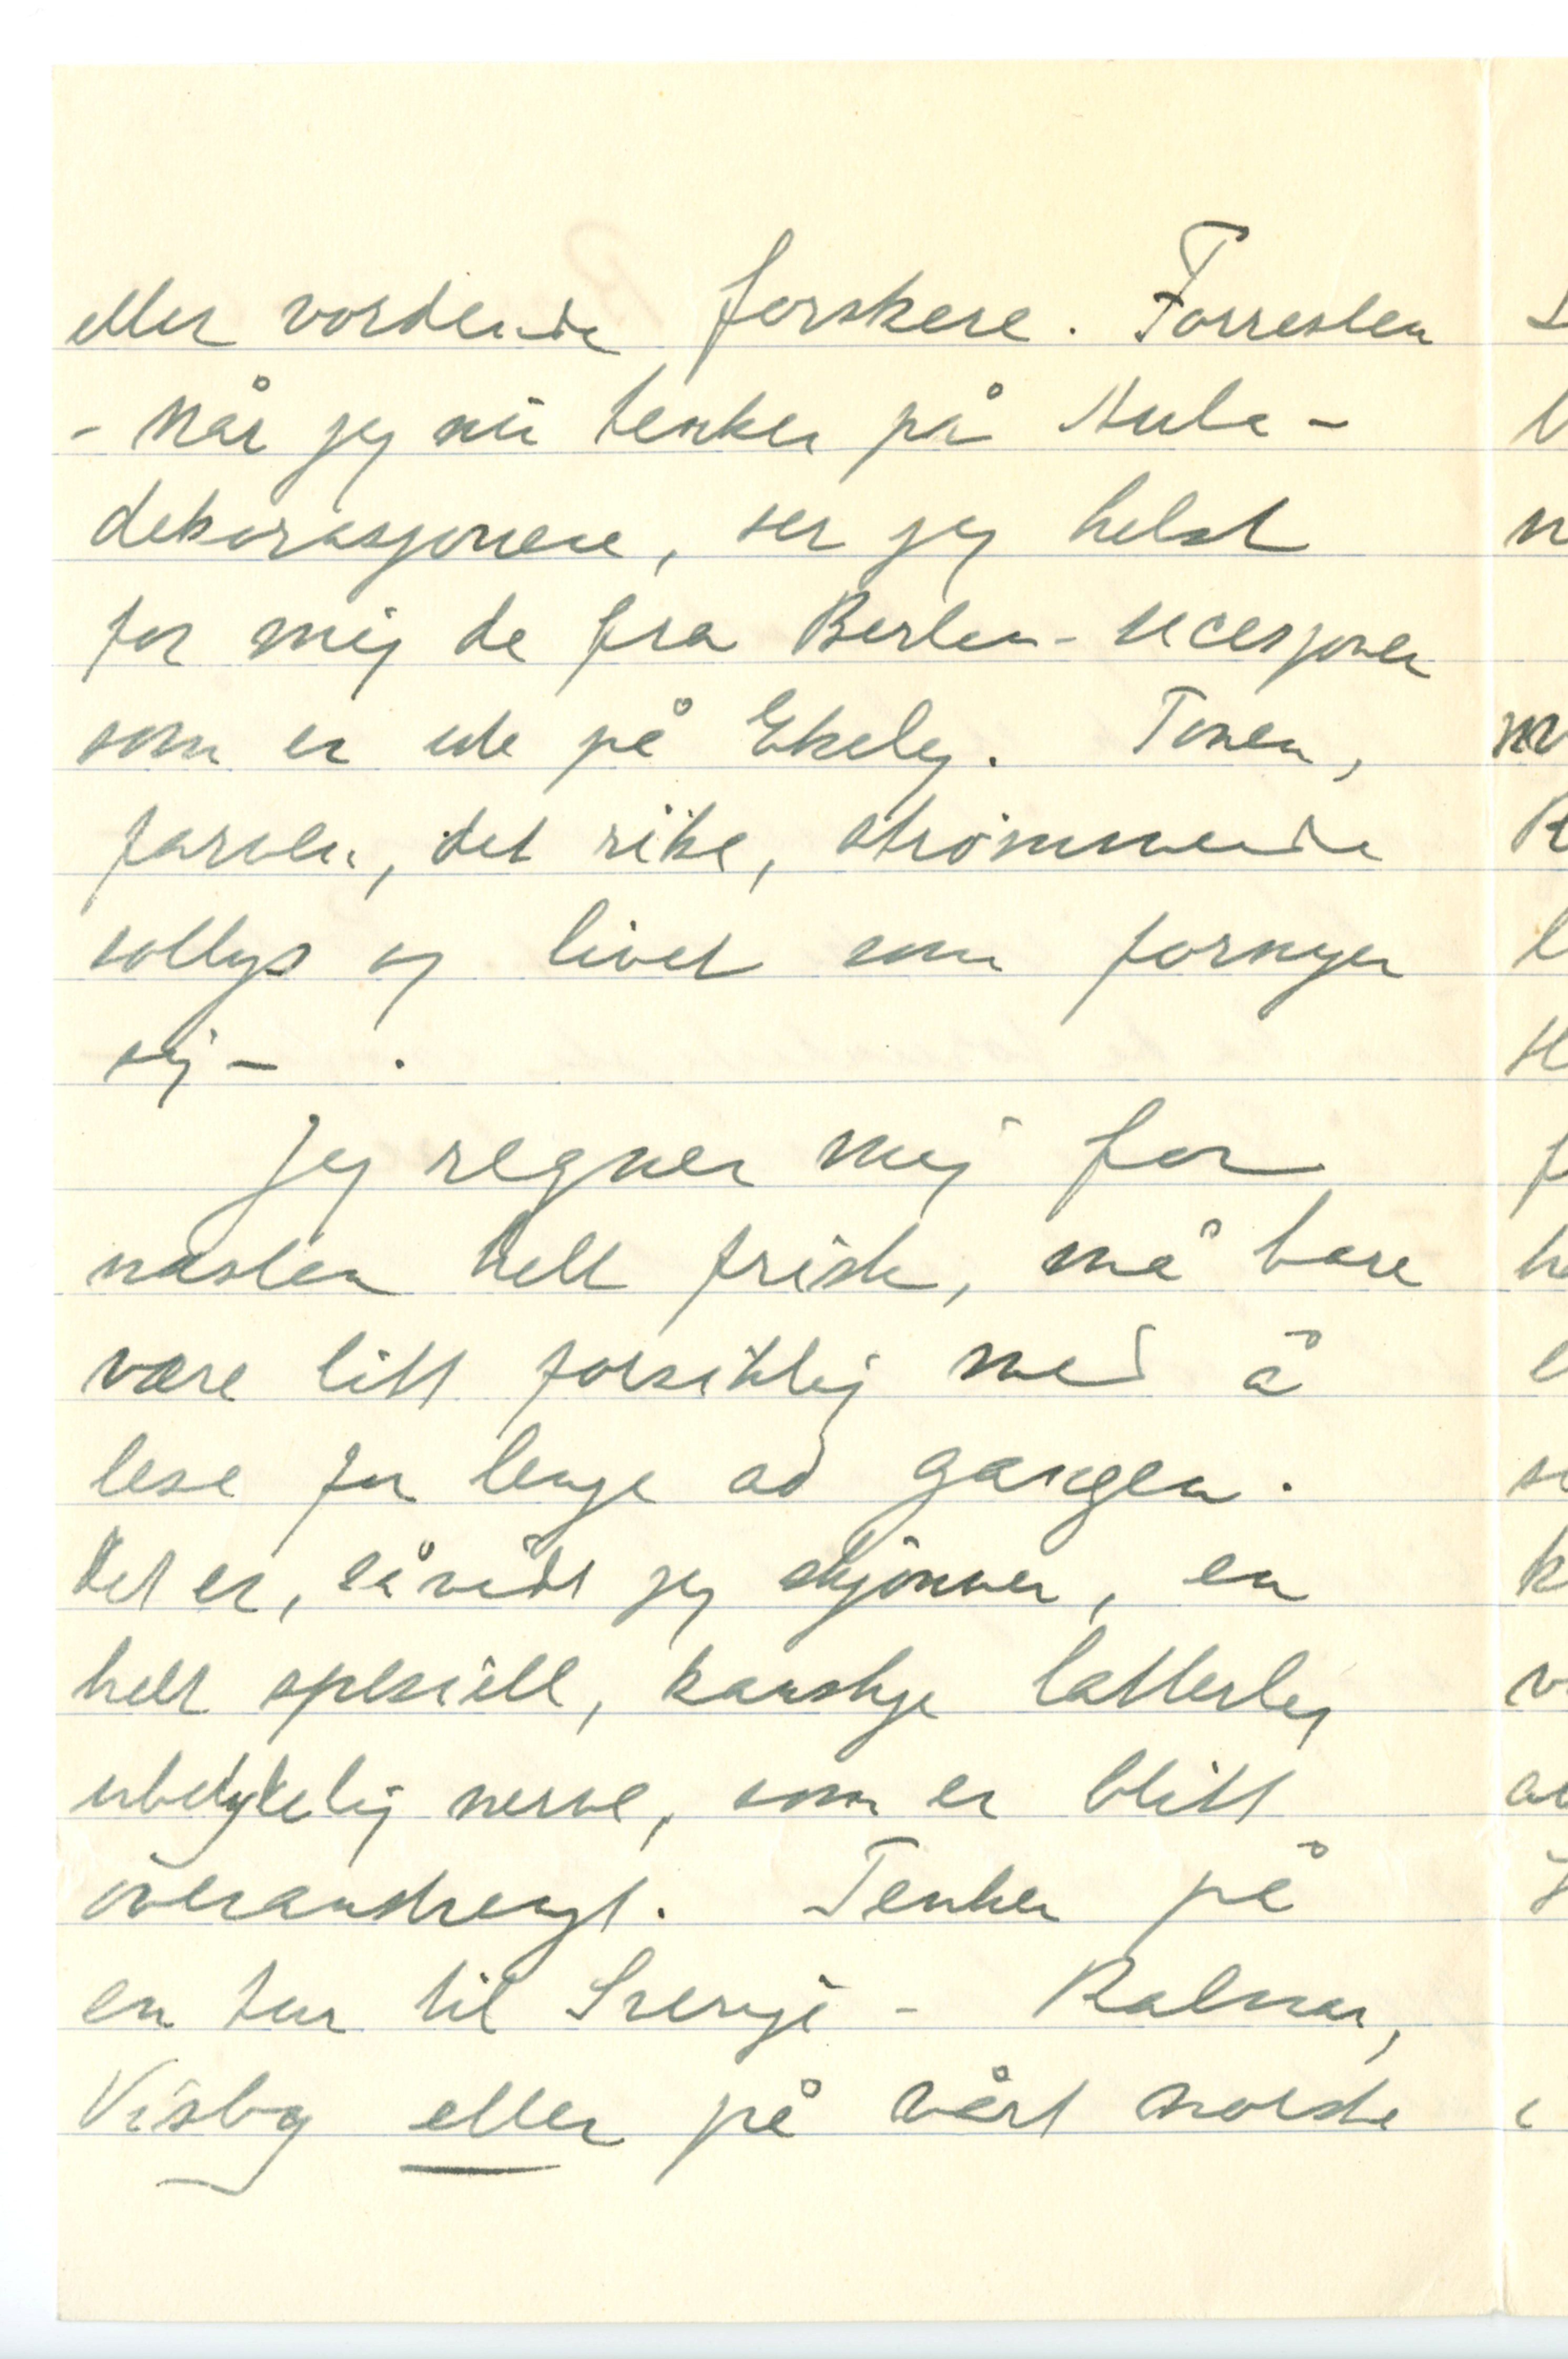 eller vordende forskere. Forresten
- når jeg nu tenker på Aula-
dekorasjonene, ser jeg helst
for mig de fra Berlin-secesjonen
som er ute på Ekely. Tonen,
farven, det rike, strømmende
sollys og livet som fornyer
sig - .
Jeg regner mig for
næsten helt frisk, må bare
være litt forsiktig med å
lese for lenge ad gangen.
Det er, såvidt jeg skjønner, en
helt spesiell, kanskje latterlig
ubetydelig nerve, som er blitt
overanstrengt. Tenker på
en tur til Sverige - Kalmar,
Visby eller på vårt norske